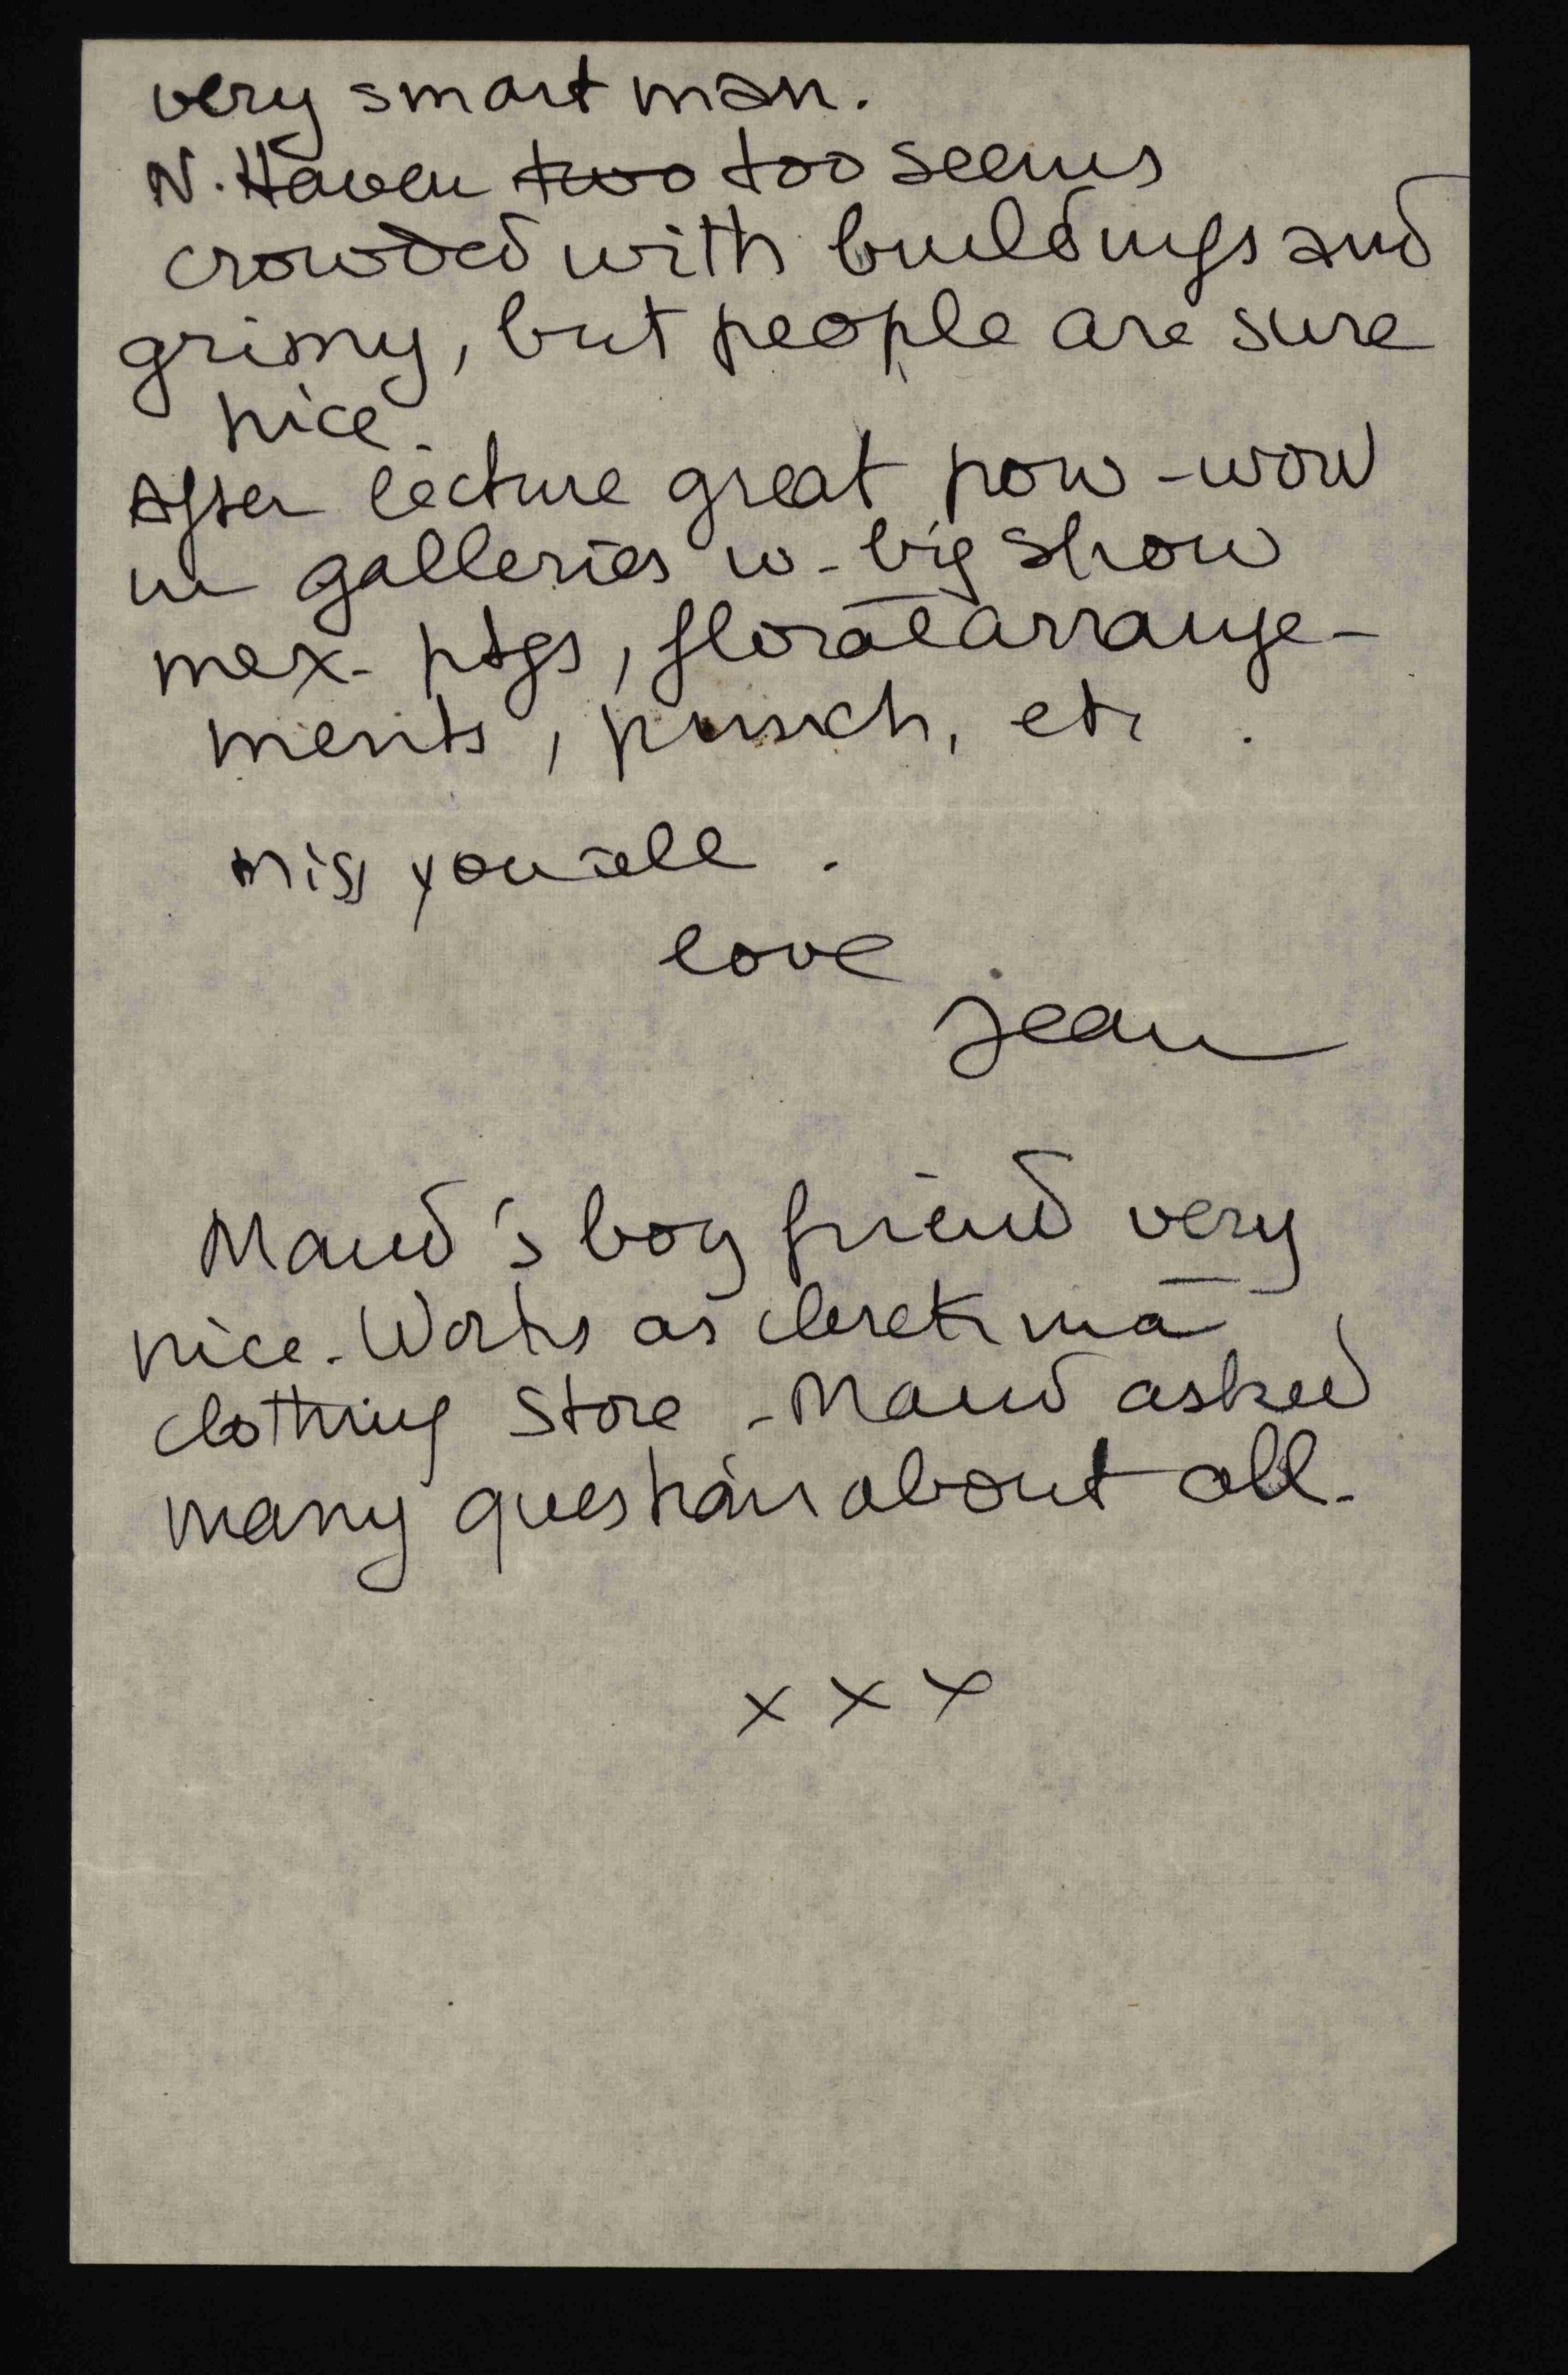 very smart man.
N. Haven two too seems
crowded with buildings and
grimy, but people are sure
nice.
After lecture great pow-wow
in galleries w. big show
mex. ptgs, floral arrange-
ments, punch, etc.
miss you all.
love
Jean
Maud's boy friend very
nice. Works as clerk in a
clothing store. Maud asked
many questions about all.
x x x